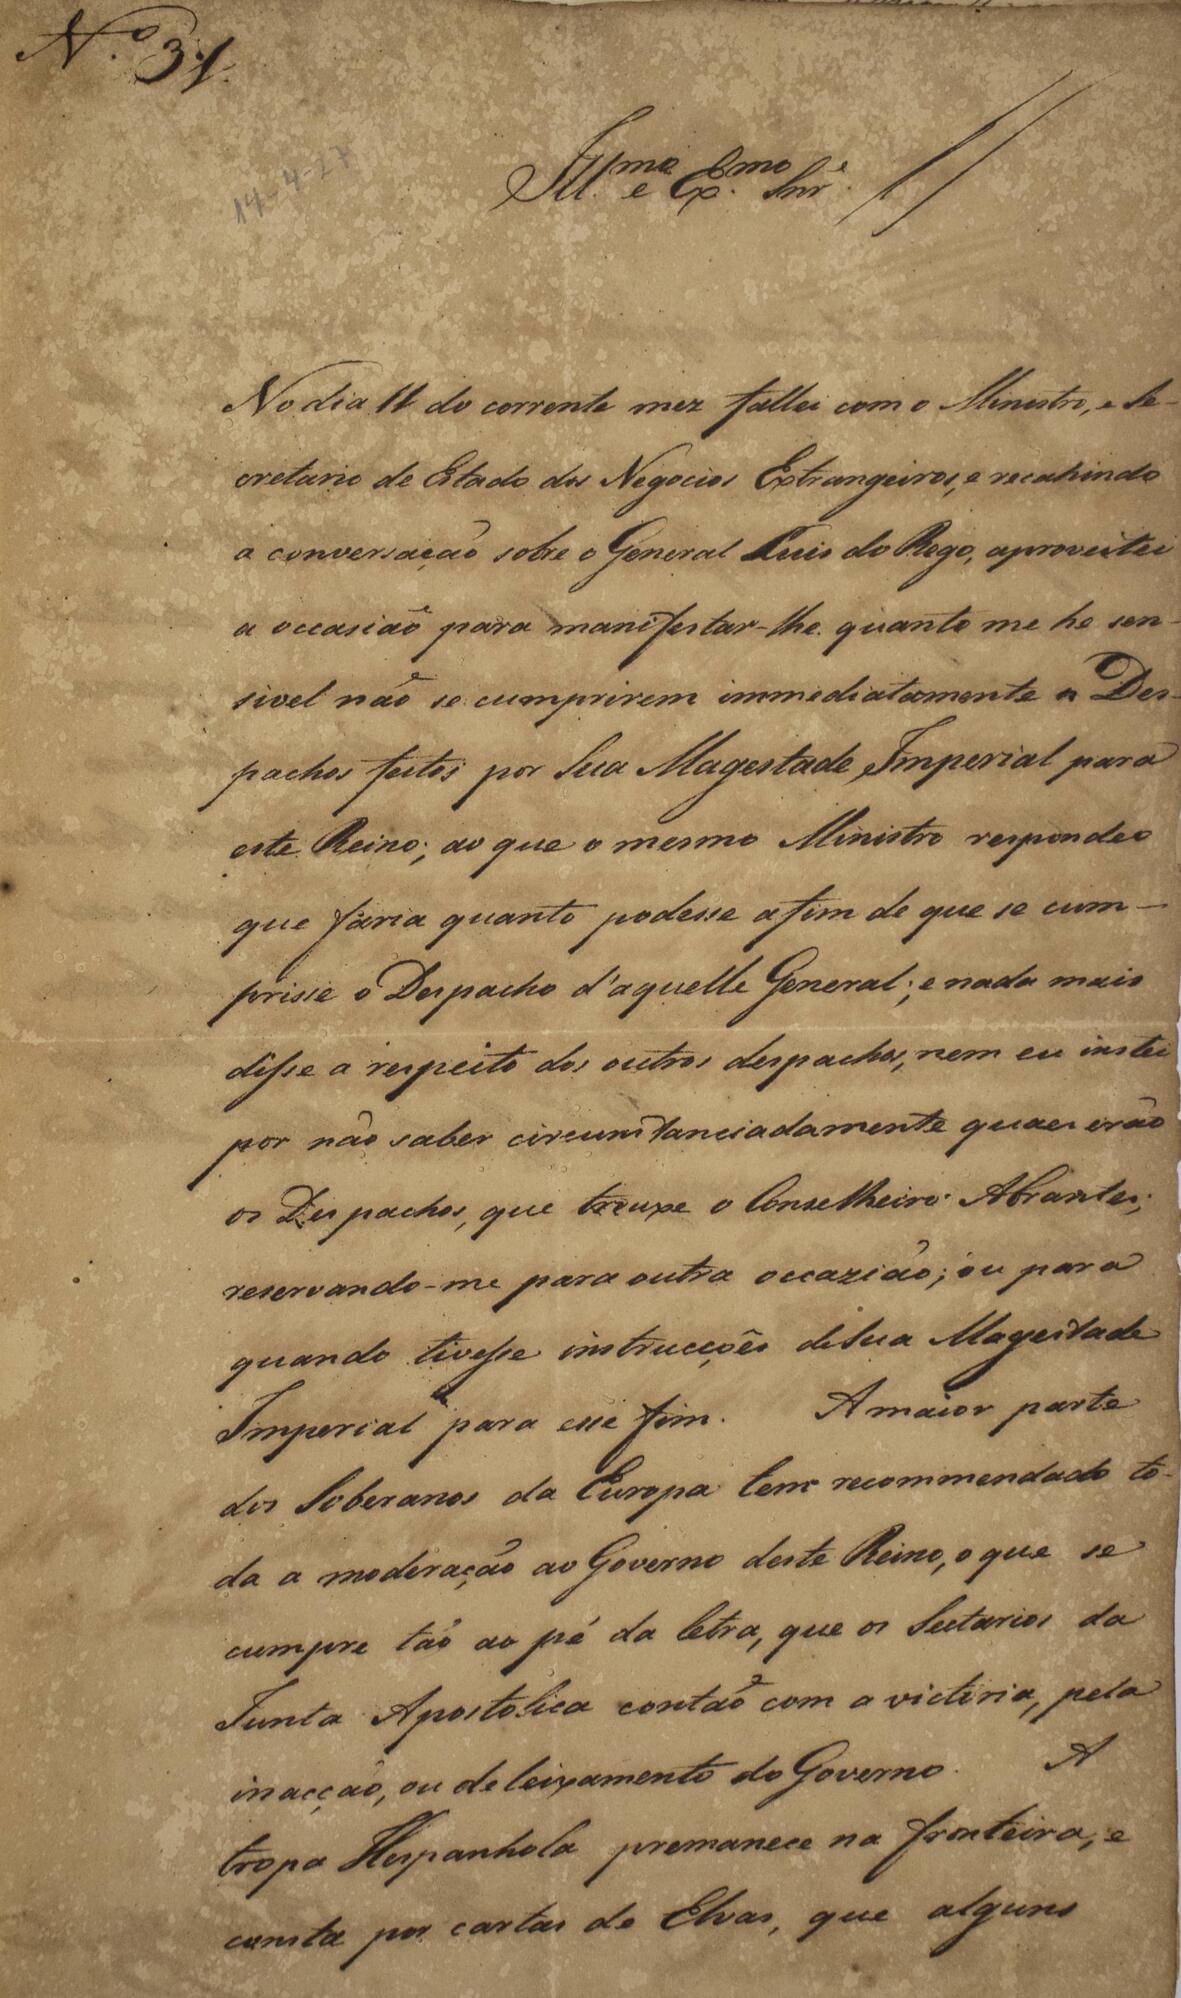 Nº 31.
14-4-27
Ill.mo e Ex.mo Snr.
No dia 11 do corrente mez fallei com o Ministro, e Se-
cretario de Estado dos Negocios Extrangeiros, e recahindo
a conversação sobre o General Luis do Rego, aproveitei
a occasião para manifestar-lhe quanto me he sen-
sivel não se cumprirem immediatamente os Des-
pachos feitos por Sua Magestade Imperial para
este Reino; ao que o mesmo Ministro respondeo
que faria quanto podesse afim de que se cum-
prisse o Despacho d'aquelle General; e nada mais
disse a respeito dos outros despachos, nem eu instei
por não saber circumstanciadamente quaes erão
os Despachos, que trouxe o Conselheiro Abrantes;
reservando-me para outra occazião; ou para
quando tivesse instrucções de Sua Magestade
Imperial para esse fim. A maior parte
dos Soberanos da Europa tem recommendado to-
da a moderação ao Governo deste Reino, o que se
cumpre tão ao pé da letra, que os Sectarios da
Junta Apostolica contão com a victoria, pela
inacção, ou deleixamento do Governo. A
tropa Hespanhola premanece na fronteira, e
consta por cartas de Elvas, que alguns